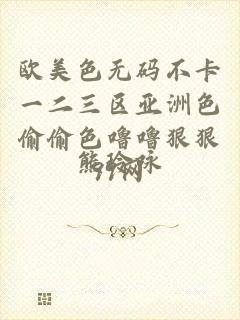 欧美色无码不卡
一二三区亚洲色
偷偷色噜噜狠狠
熊玲咏